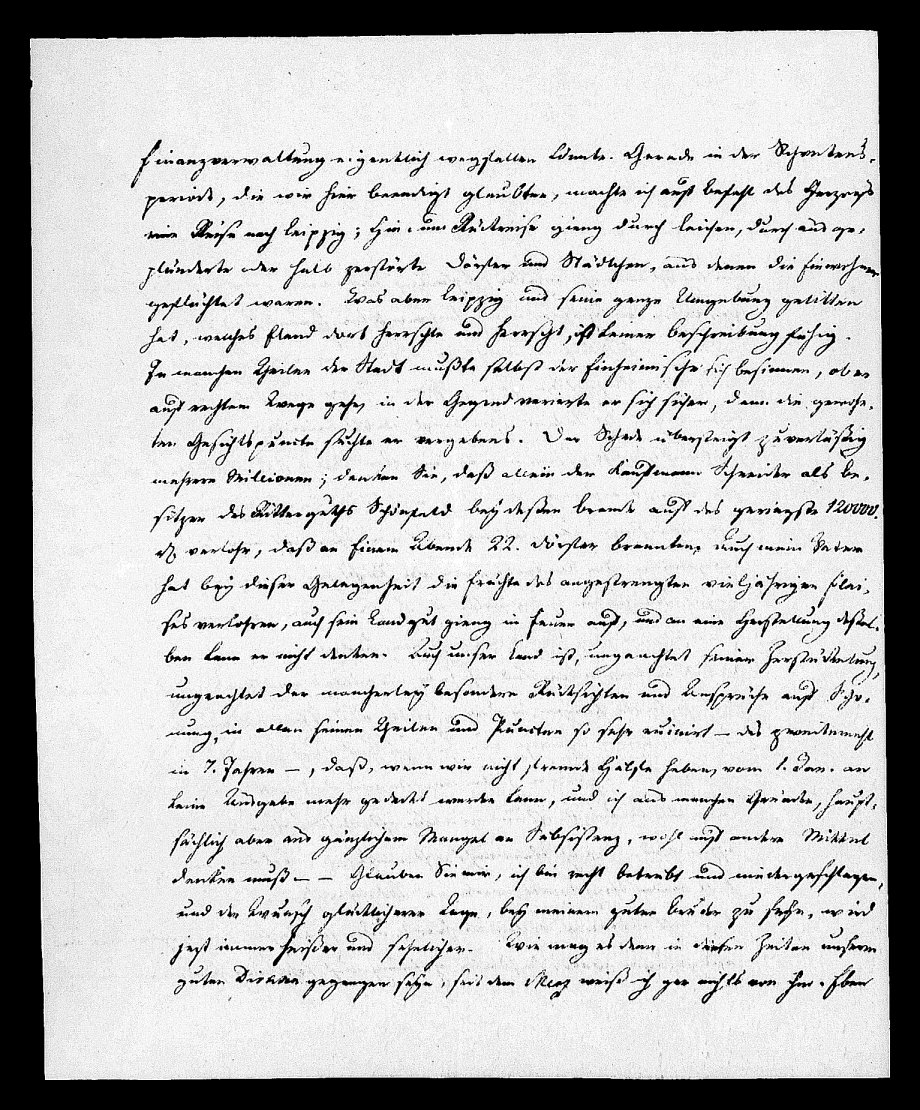 Finanzverwaltung eigentlich wegfallen könnte. Gerade in der Schreckens-
periode, die wir hier beendigt glaubten, machte ich auf Befehl des Herzogs
eine Reise nach Leipzig; Hin- und Rückreise gieng durch Leichen, durch ausge-
plünderte oder halb zerstörte Dörfer und Städtchen, aus denen die Einwohner
geflüchtet waren. Was aber Leipzig und seine ganze Umgebung gelitten
hat, welches Elend dort herrschte und herrscht, ist keiner Beschreibung fähig.
In manchen Theilen der Stadt mußte selbst der Einheimische sich besinnen, ob er
auf rechtem Wege gehe, in der Gegend verirrte er sich sicher, denn die gewohn-
ten Gesichtspuncte suchte er vergebens. Der Schade übersteigt zuverläßig
mehrere Millionen; denken Sie, daß allein der Kaufmann Schneider als Be-
sitzer des Ritterguths Schönfeld bey deßen Brande aufs geringste 120000.
rh verlohr, daß an Einem Abende 22. Dörfer brannten, auch mein Vater
hat bey dieser Gelegenheit die Früchte des angestrengten vieljährigen Flei-
ses verlohren, auch sein Landgut gieng in Feuer auf, und an eine Herstellung deßel-
ben kann er nicht denken. Auch unser Land ist, ungeachtet seiner Zerstückelung,
ungeachtet der mancherley besondern Rücksichten und Ansprüche auf Scho-
nung, in allen seinen Theilen und Puncten so sehr ruinirt – das zweitemahl
in 7. Jahren –, daß, wenn wir nicht fremde Hülfe haben, vom 1. Jan. an
keine Ausgabe mehr gedeckt werden kann, und ich aus manchen Gründen, haupt-
sächlich aber aus gänzlichem Mangel an Subsistenz, wohl auf andre Mittel
denken muß – – Glauben Sie mir, ich bin recht betrübt und niedergeschlagen,
und der Wunsch glücklicherer Tage, bey meinem guten Bruder zu sehn, wird
jezt immer heißer und sehnlicher. Wie mag es denn in diesen Zeiten unserm
guten gegangen seyn, seit dem Merz weiß ich gar nichts von ihm. Eben